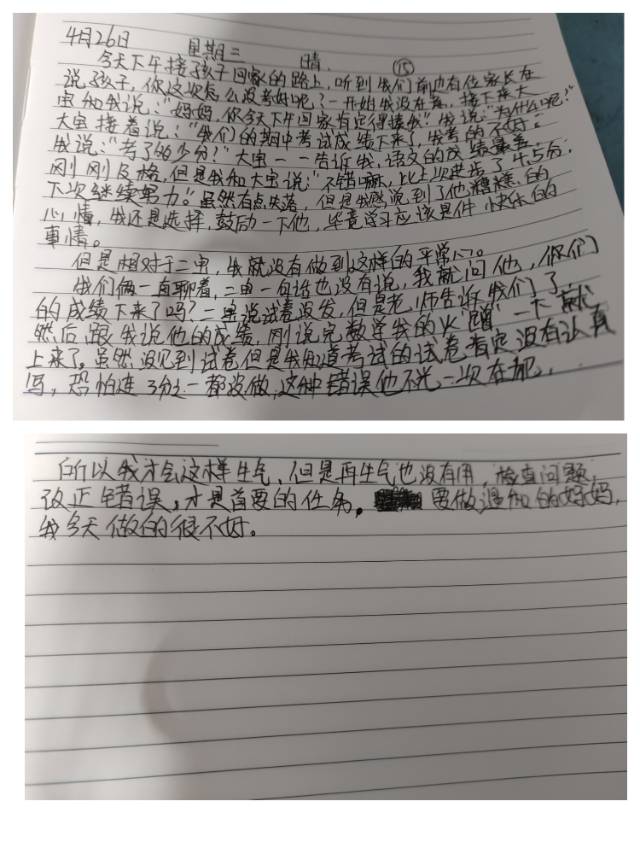 4月26日 星期二 晴 ⑮
今天下午接了孩子回家的路上，听到我们前边有位家长在
说孩子，你这次怎么没考好呢？一开始我没在意，接下来大
宝和我说：“妈妈，你今天下午回家肯定得揍我！”我说：“为什么呢？”
大宝接着说：“我们的期中考试成绩下来了，我考的不好。”
我说：“考了多少分？”大宝一一告诉我，语文的成绩最差，
刚刚及格，但是我和大宝说：“不错嘛，比上次进步了4.5分，
下次继续努力。”虽然有点失落，但是我感觉到了他糟糕的
心情，我还是选择，鼓励一下他，毕竟学习应该是件快乐的
事情。
但是相对于二宝，我就没有做到这样的平常心。
我们俩一直聊着，二宝一句话也没有说，我就问他，你们
的成绩下来了吗？二宝说试卷没发，但是老师告诉我们了，
然后跟我说他的成绩，刚说完数学我的火“蹭”一下就
上来了。虽然没见到试卷但是我知道考试的试卷肯定没有认真
写，恐怕连3分之一都没做，这种错误他不光一次在犯，
所以我才会这样生气，但是再生气也没有用，检查问题，
改正错误，才是首要的任务。要做温和的妈妈，
我今天做的很不好。